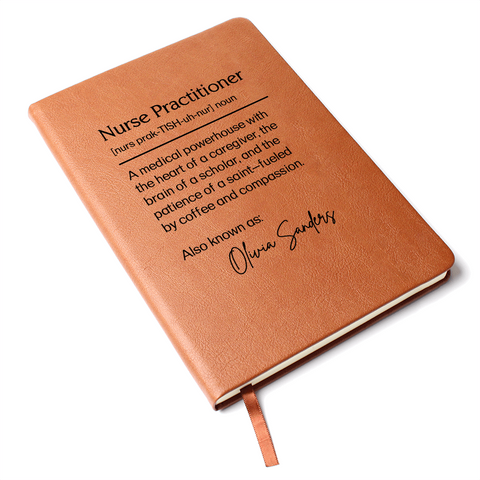 Nurse Practitioner
[nurs prak-TISH-uh-nur] noun
A medical powerhouse with
the heart of a caregiver, the
brain of a scholar, and the
patience of a saint—fueled
by coffee and compassion.
Also known as:
Olivia Sanders